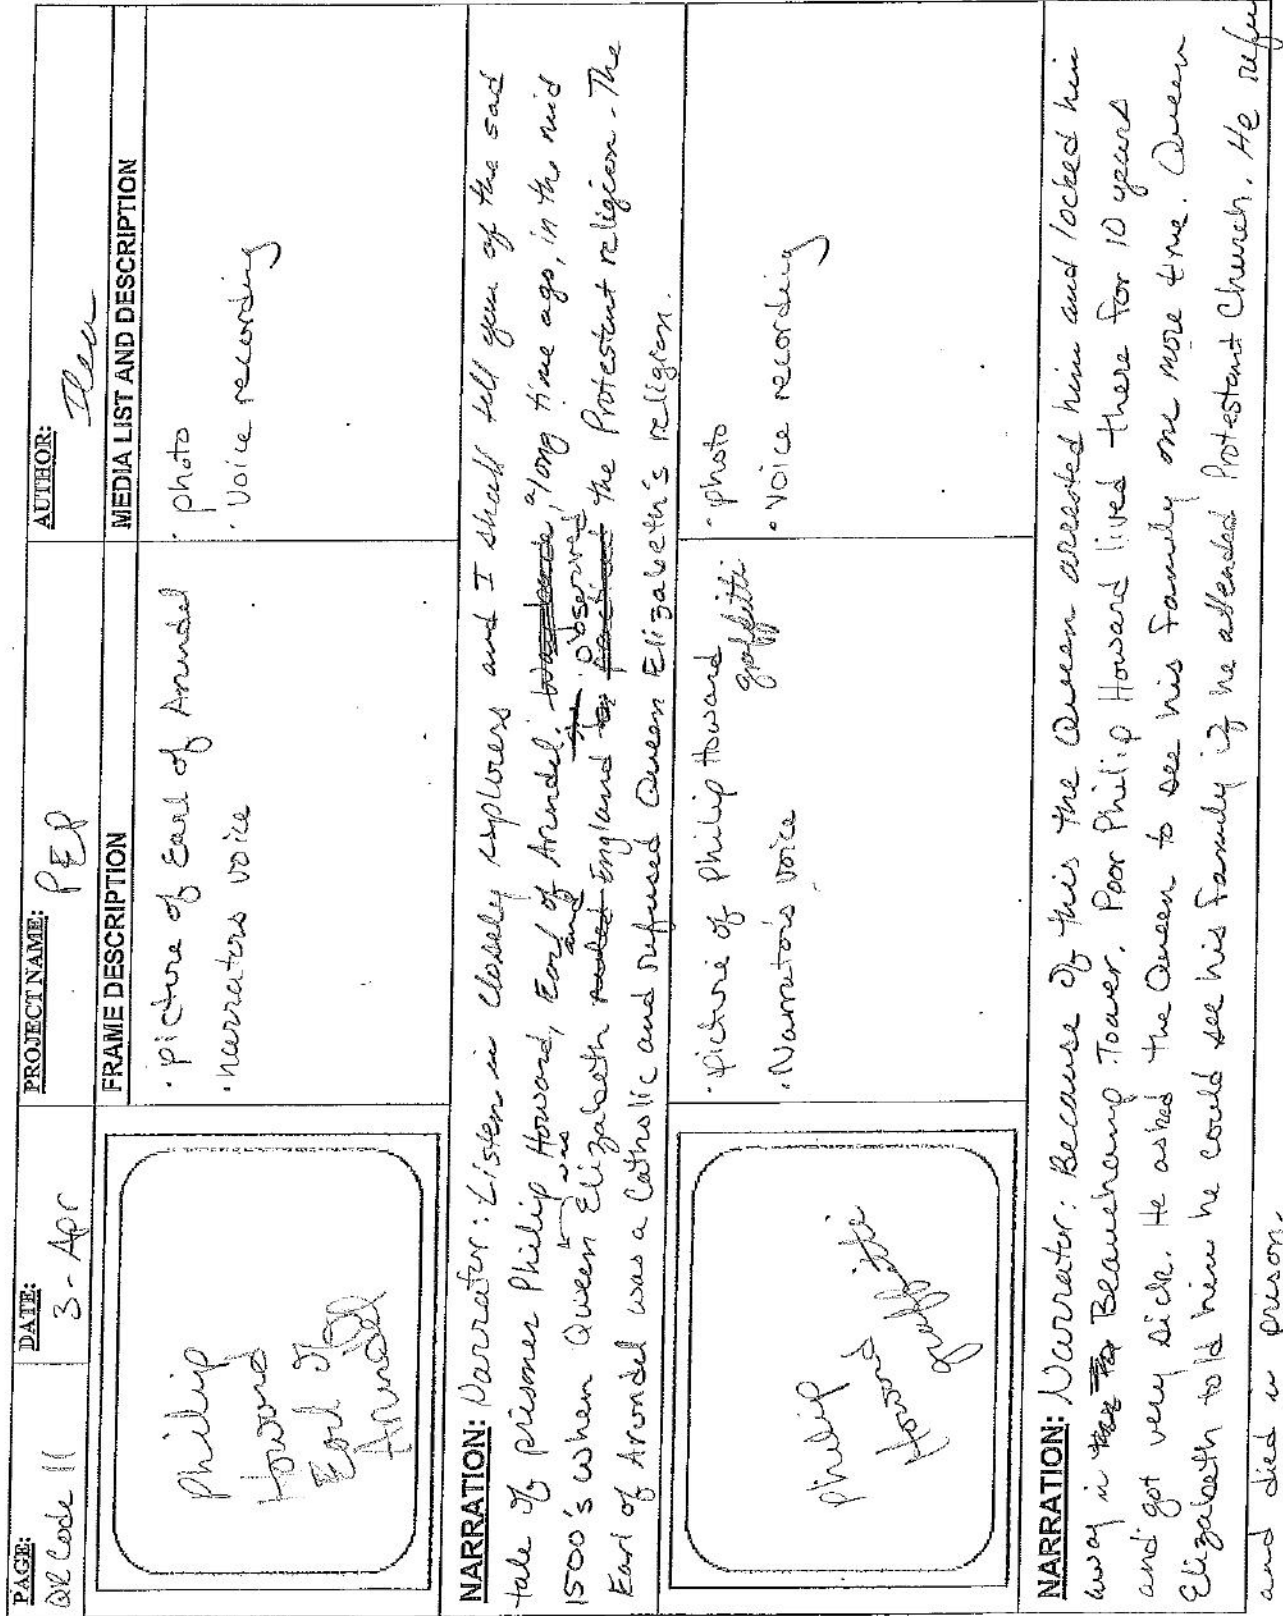 PAGE: DATE: PROJECT NAME: AUTHOR:
QR Code 11 3-Apr PEP
FRAME DESCRIPTION MEDIA LIST AND DESCRIPTION
Philip
Howard
Earl of
Arundel
· picture of Earl of Arundel
· narrators voice
· photo
· Voice recording
NARRATION: Narrator: Listen in closely explorers and I shall tell you of the sad
tale of prisoner Philip Howard, Earl of Arundel. a long time ago, in the mid
1500's when Queen Elizabeth was ruled England and observed the Protestant religion. The
Earl of Arundel was a Catholic and refused Queen Elizabeth's religion.
Philip
Howard
graffitti
· picture of Philip Howard
graffitti
· Narrator's voice
· photo
· voice recording
NARRATION: Narrator: Because of this the Queen arrested him and locked him
away in the Beauchamp Tower. Poor Philip Howard lived there for 10 years
and got very sick. He asked the Queen to see his family one more time. Queen
Elizabeth told him he could see his family if he attended Protestant Church. He refu
and died in prison.